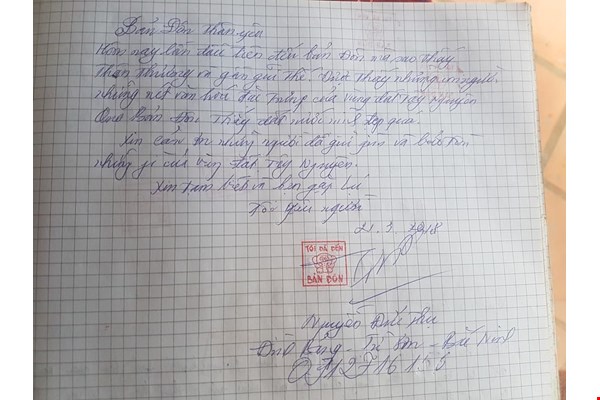 Bản Đôn thân yêu
Hôm nay lần đầu tiên đến bản Đôn mà sao thấy
thân thương và gần gũi thế. Được thấy những con người,
những nét văn hoá đặc trưng của vùng đất Tây Nguyên
Qua Bản Đôn thấy đất nước mình đẹp quá.
Xin cảm ơn những người đã giữ gìn và bảo tồn
những gì của vùng đất Tây Nguyên.
Xin tạm biệt và hẹn gặp lại
21.3.2018
TÔI ĐÃ ĐẾN
BẢN ĐÔN
Nguyễn Đức
Đình Bảng - Từ Sơn - Bắc Ninh